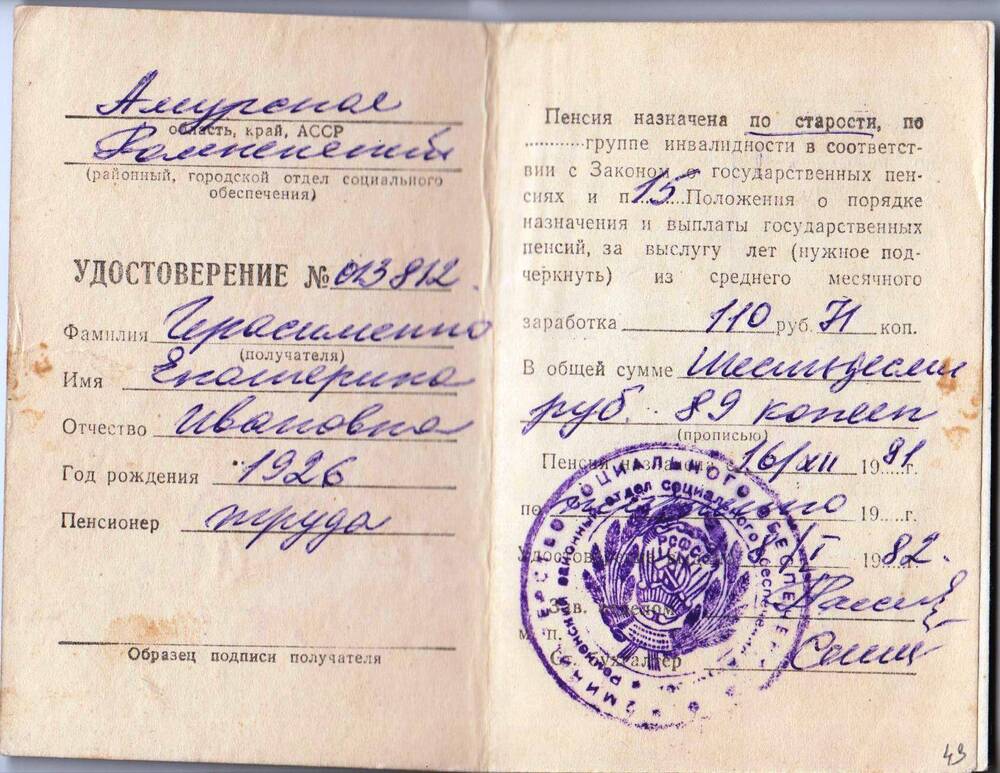 Амурская
область, край, АССР
Ромненский
(районный, городской отдел социального
обеспечения)
УДОСТОВЕРЕНИЕ № 013812.
Фамилия Герасименко
(получателя)
Имя Екатерина
Отчество Ивановна
Год рождения 1926
Пенсионер труда
Образец подписи получателя
Пенсия назначена по старости, по
...........группе инвалидности в соответст-
вии с Законом о государственных пен-
сиях и п. 15 Положения о порядке
назначения и выплаты государственных
пенсий, за выслугу лет (нужное под-
черкнуть) из среднего месячного
заработка 110 руб. 71 коп.
В общей сумме Шестьдесят
руб. 89 копеек
(прописью)
Пенсия назначена с 16/XII 1981 г.
по 19....г.
Удостоверение 1982.
Зав. отделом
м. п.
Ст. бухгалтер
МИНИСТЕРСТВО СОЦИАЛЬНОГО ОБЕСПЕЧЕНИЯ
Ромненский районный отдел социального обеспечения
РСФСР
49